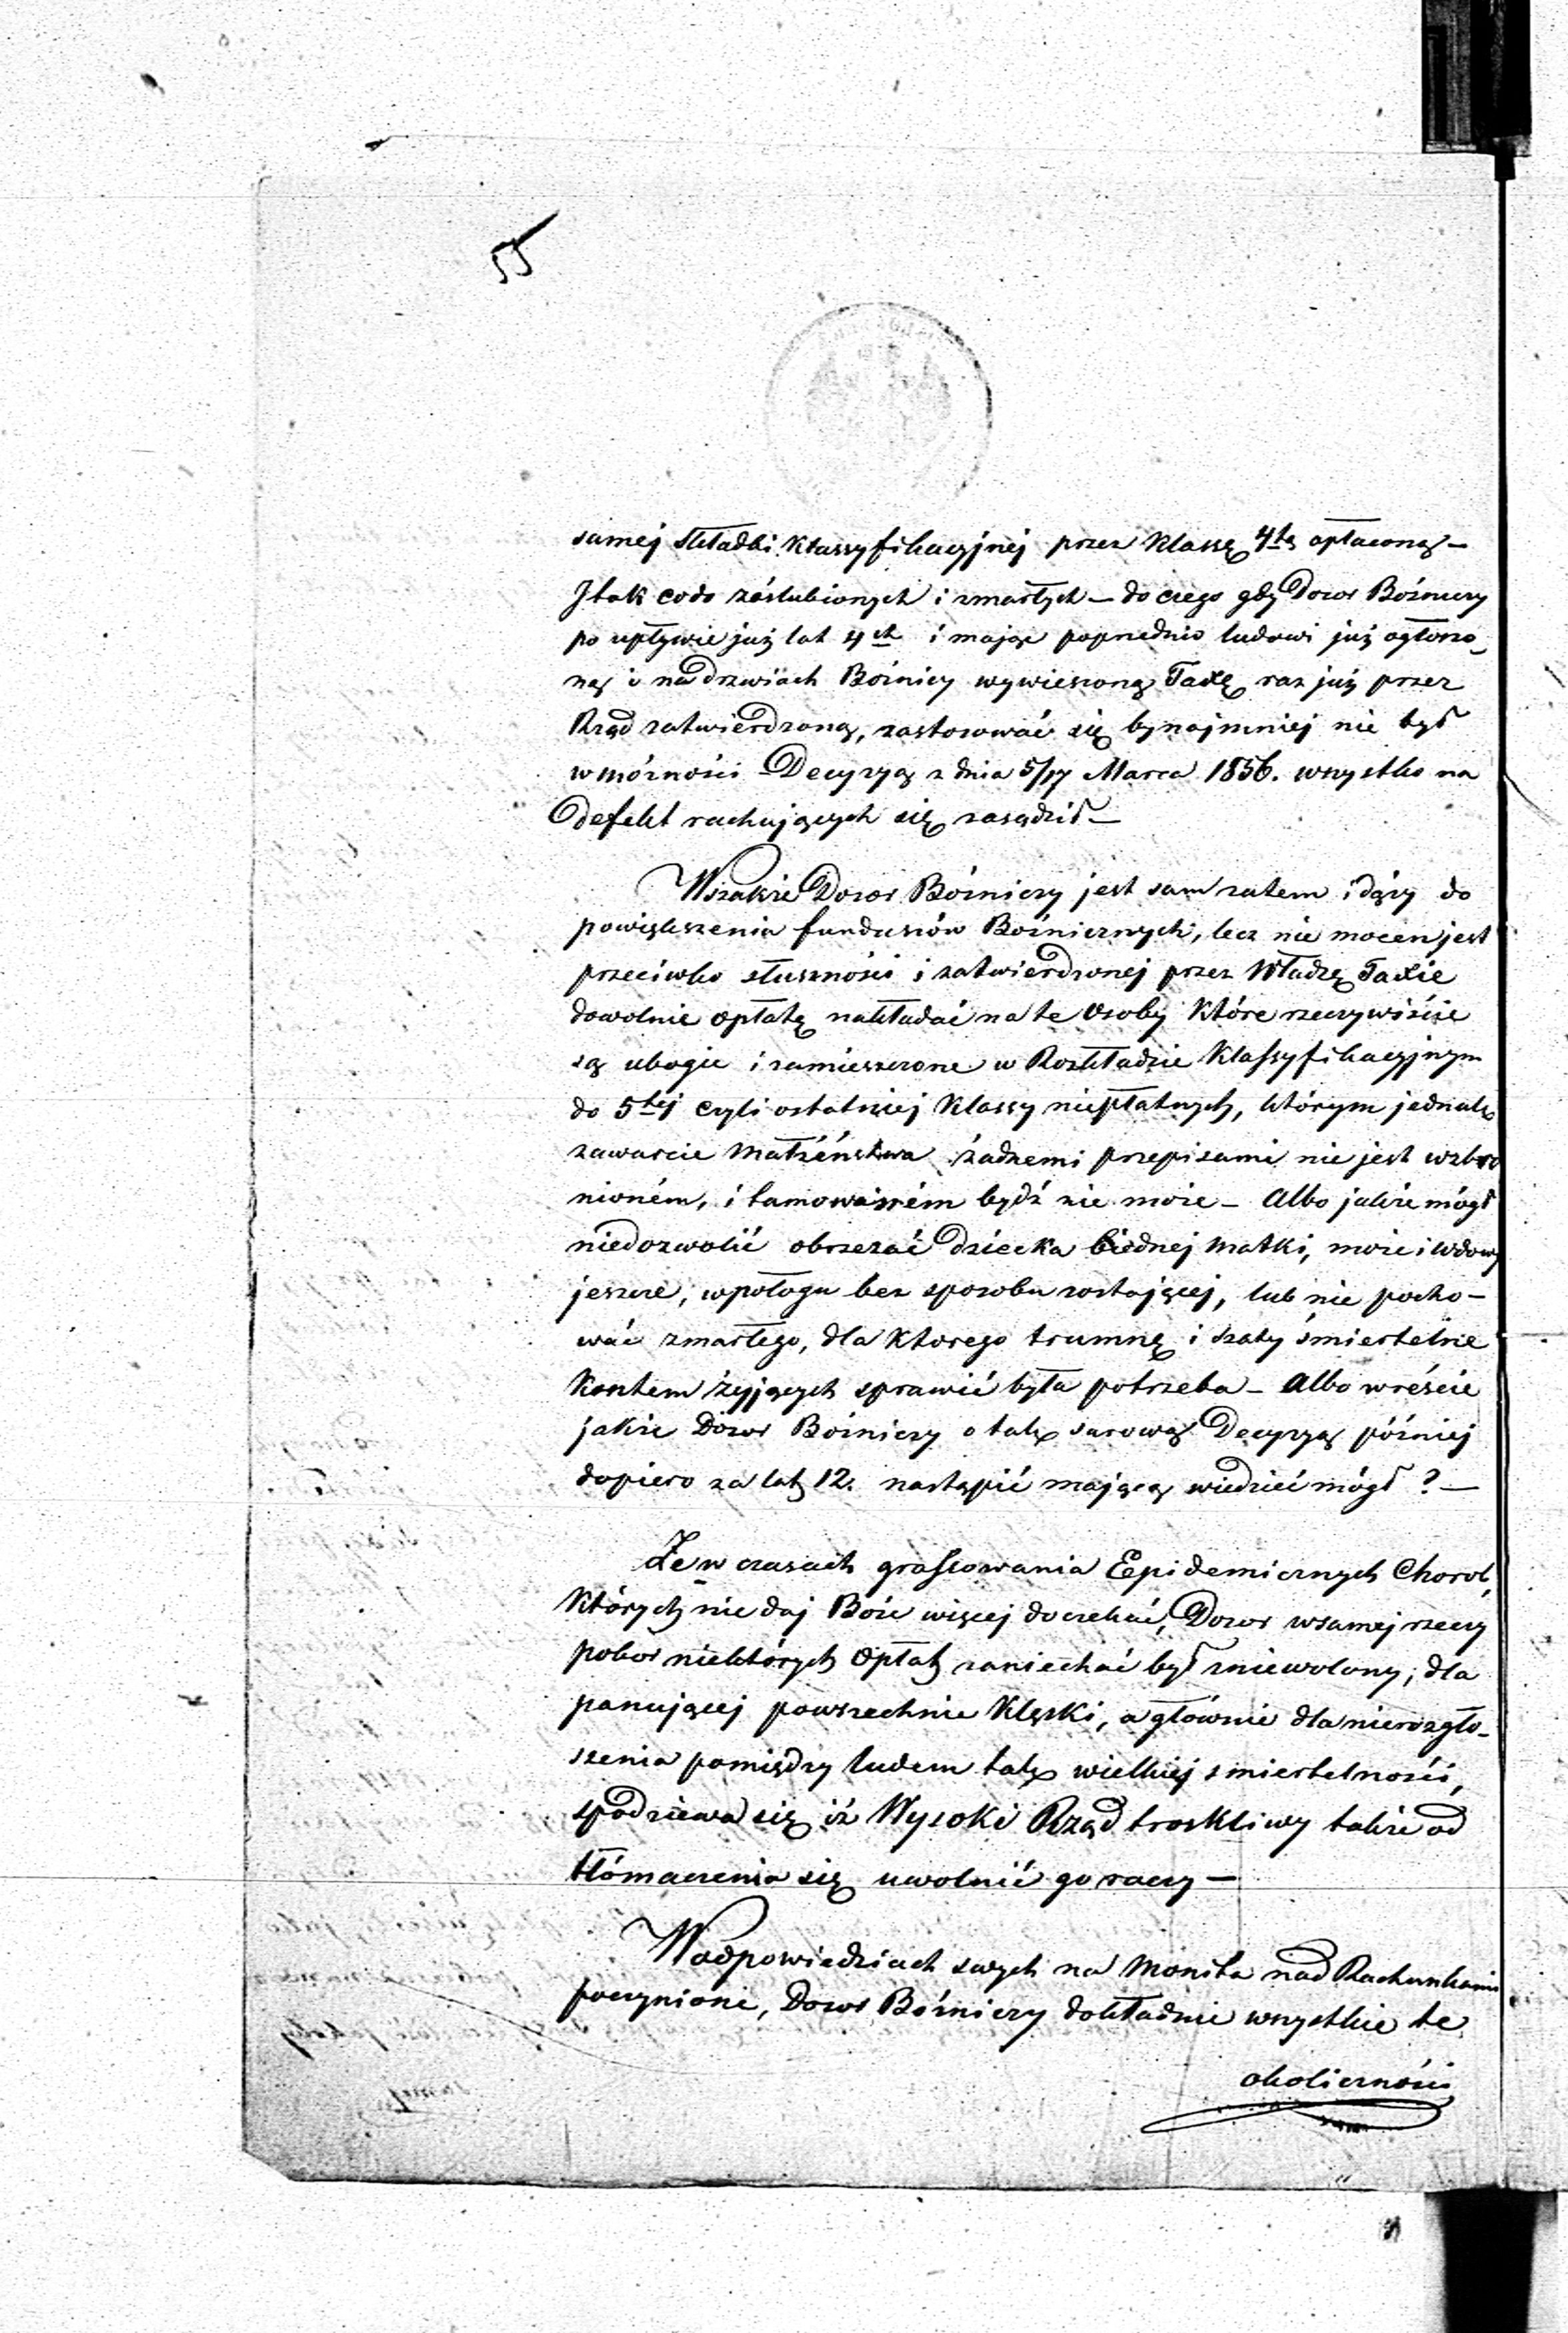 55
samej składki klassyfikacyjnej przez klassę 4tą opłaconą —
Itak codo zaślubionych i zmarłych — do czego gdy Dozor Bóżniczy
po upływie już lat 4ch i mając poprzednio ludowi już ogłoszo-
ną i na drzwiach Bóżnicy wywieszoną Taxę raz już przez
Rząd zatwierdzoną, zastosować się bynajmniej nie był
w możności Decyzyą z dnia 5/17 Marca 1856. wszystko na
defekt rachujących się zasądził —
Wszakże Dozor Bóżniczy jest sam zatem i dąży do
powiększenia funduszów Bóżnicznych, lecz nie mocen jest
przeciwko słuszności i zatwierdzonej przez Władzę Taxie
dowolnie opłatę nakładać na te Osoby które rzeczywiście
są ubogie i zamieszczone w Rozkładzie Klassyfikacyjnym
do 5tej czyli ostatniej Klassy niepłatnych, którym jednak
zawarcie małżeństwa żadnemi przepisami nie jest wzbro
nioném, i tamowaném bydź nie może — Albo jakże mógł
niedozwolić obrzezać dziecka biednej matki, może i wdowy
jeszcze, w połogu bez sposobu zostającej, lub nie pocho-
wać zmarłego, dla ktorego trumnę i szaty śmiertelne
kosztem żyjących sprawić była potrzeba — Albo wreście
jakże Dozor Bóżniczy o tak surową Decyzyą później
dopiero za lat 12. nastąpić mającą wiedzieć mógł ? —
Że w czasach grassowania Epidemicznych Chorob,
Których nie daj Boże więcej doczekać, Dozor w samej rzeczy
pobor niektórych Opłat zaniechać był zniewolony, dla
panującej powszechnie klęski, a głównie dla nierozgło-
szenia pomiędzy ludem tak wielkiej smiertelności,
spodziewa się iż Wysoki Rząd troskliwy także od
tłómaczenia się uwolnić go raczy —
W odpowiedziach swych na Monita nad Rachunkami
poczynione, Dozor Bóżniczy dokładnie wszystkie te
okoliczności